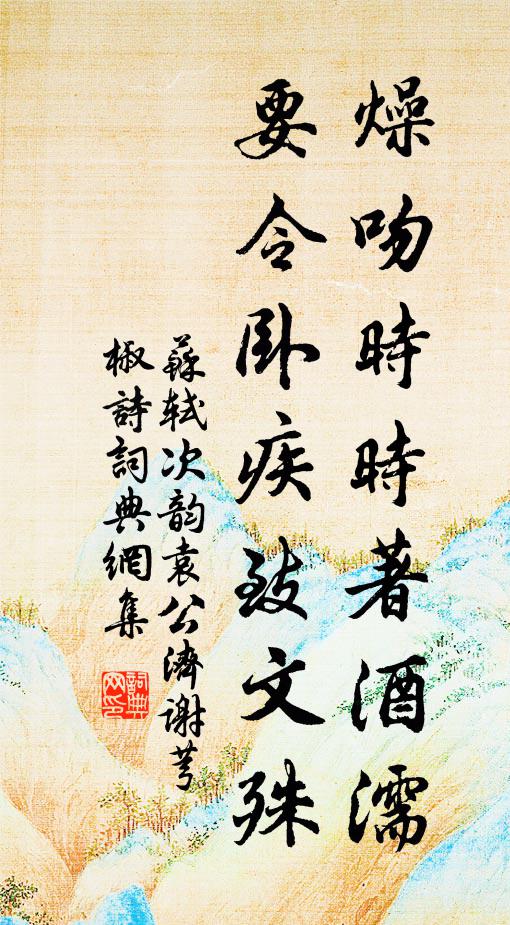 燥吻時時著酒濡
要令卧疾致文殊
蘇軾次韵袁公濟謝芎
椒詩詞典網集
詞典
网印